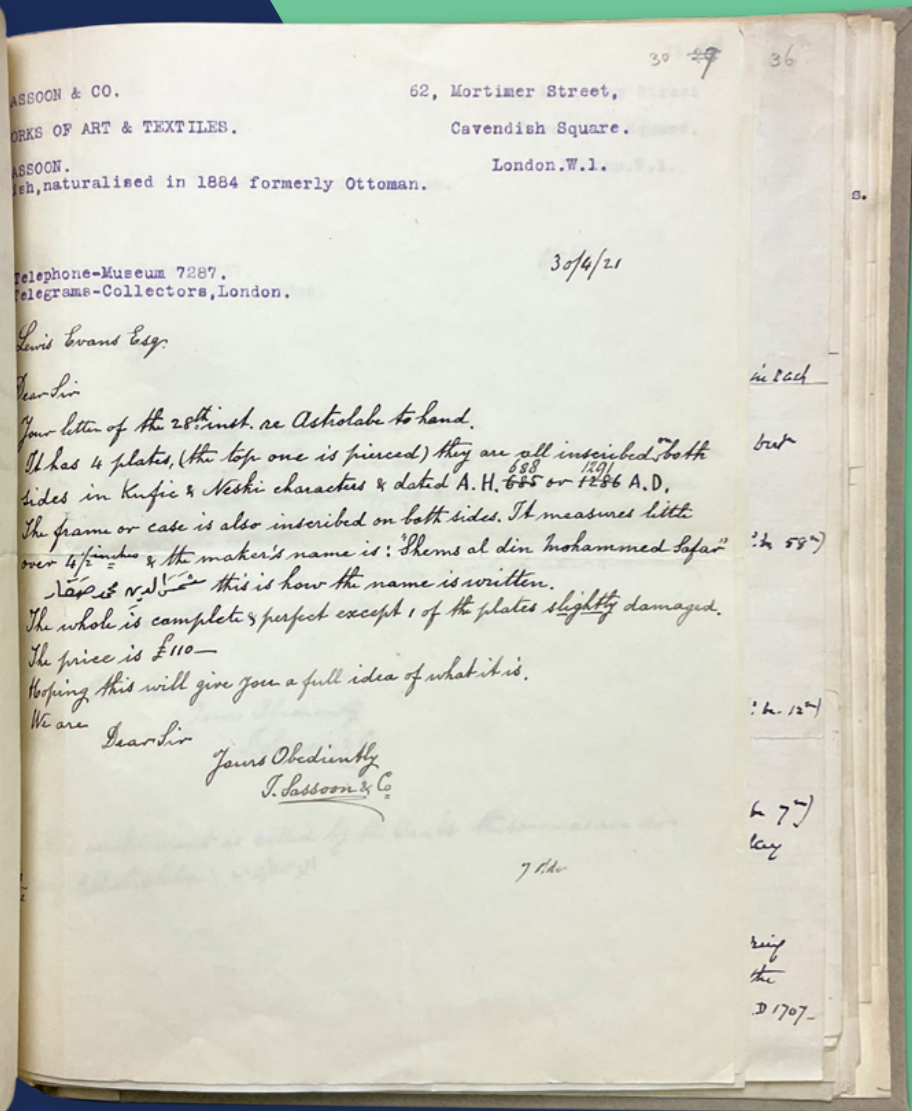 30 29
36
ASSOON & CO.
62, Mortimer Street,
ORKS OF ART & TEXTILES.
Cavendish Square.
ASSOON.
London.W.1.
ish,naturalised in 1884 formerly Ottoman.
s.
30/4/21
Telephone-Museum 7287.
Telegrams-Collectors,London.
Lewis Evans Esq.
Dear Sir
Your letter of the 28th inst. re Astrolabe to hand.
It has 4 plates, (the top one is pierced) they are all inscribed on both
688 1291
sides in Kufic & Neski characters & dated A.H. 685 or 1286 A.D.
The frame or case is also inscribed on both sides. It measures little
over 4 1/2 inches & the maker's name is: "Shems al din Mohammed Safar"
شمس الدين محمد صفار this is how the name is written.
The whole is complete & perfect except 1 of the plates slightly damaged.
The price is £110—
Hoping this will give you a full idea of what it is.
We are
Dear Sir
Yours Obediently
J. Sassoon & Co
but
58m)
12m)
7m)
the
.D 1707_